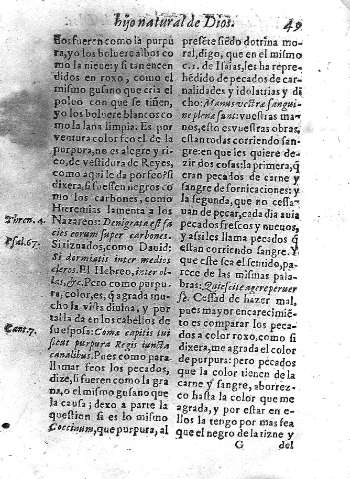 hijo natural de Dios.
49
dos fueren como la purpu
ra, yo los boluere albos co
mo la nieue: y si tan encen
didos en roxo, como el
mismo gusano que cria el
poluo con que se tiñen,
yo los boluere blancos co
mo la lana limpia. Es por
ventura color feo el de la
purpura, no es alegre y ri
co, de vestidura de Reyes,
como aqui le da por feo? si
dixera, si fuessen negros co
mo los carbones, como
Hieremias lamenta a los
Nazareos: Denigrata est fa
cies eorum super carbones.
Si tiznados, como Dauid:
Si dormiatis inter medios
cleros. El Hebreo, inter ol-
las, &c. Pero como purpu
ra, color, es, q̃ agrada mucho
la vista diuina, y por
tal la da en los cabellos de
su esposa: Como capitis tui
sicut purpura Regis iuncta
canalibus. Pues como para
llamar feos los pecados,
dize, si fueren como la gra
na, o el mismo gusano que
la causa; dexo a parte la
question si es lo mismo
Coccinum, que purpura, al
Thren. 4.
Psal. 67.
Cant. 7.
presēte siēdo dotrina mo
ral, digo, que en el mismo
c. de Isaias, les ha repre-
hēdido de pecados de car
nalidades y idolatrias y di
cho: Manus vestræ sangui
ne plenæ sunt: vuestras ma
nos, esto es vuestras obras,
estan todas corriendo san-
gre: en que les quiere de-
zir dos cosas: la primera, q̃
eran pecados de carne y
sangre de fornicaciones: y
la segunda, que no cessa-
uan de pecar, cada dia auia
pecados frescos y nueuos,
y assi les llama pecados q̃
estan corriendo sangre. Y
que este sea el sentido, pa-
rece de las mismas pala-
bras: Quiescite agere peruer
se. Cessad de hazer mal,
pues mayor encarecimiē-
to es comparar los peca-
dos a color roxo, como si
dixera, me agrada el color
de purpura: pero pecados
que la color tienen de la
carne y sangre, aborrez-
co hasta la color que me
agrada, y por estar en e-
llos la tengo por mas fea
que el negro de la tizne y
G
del